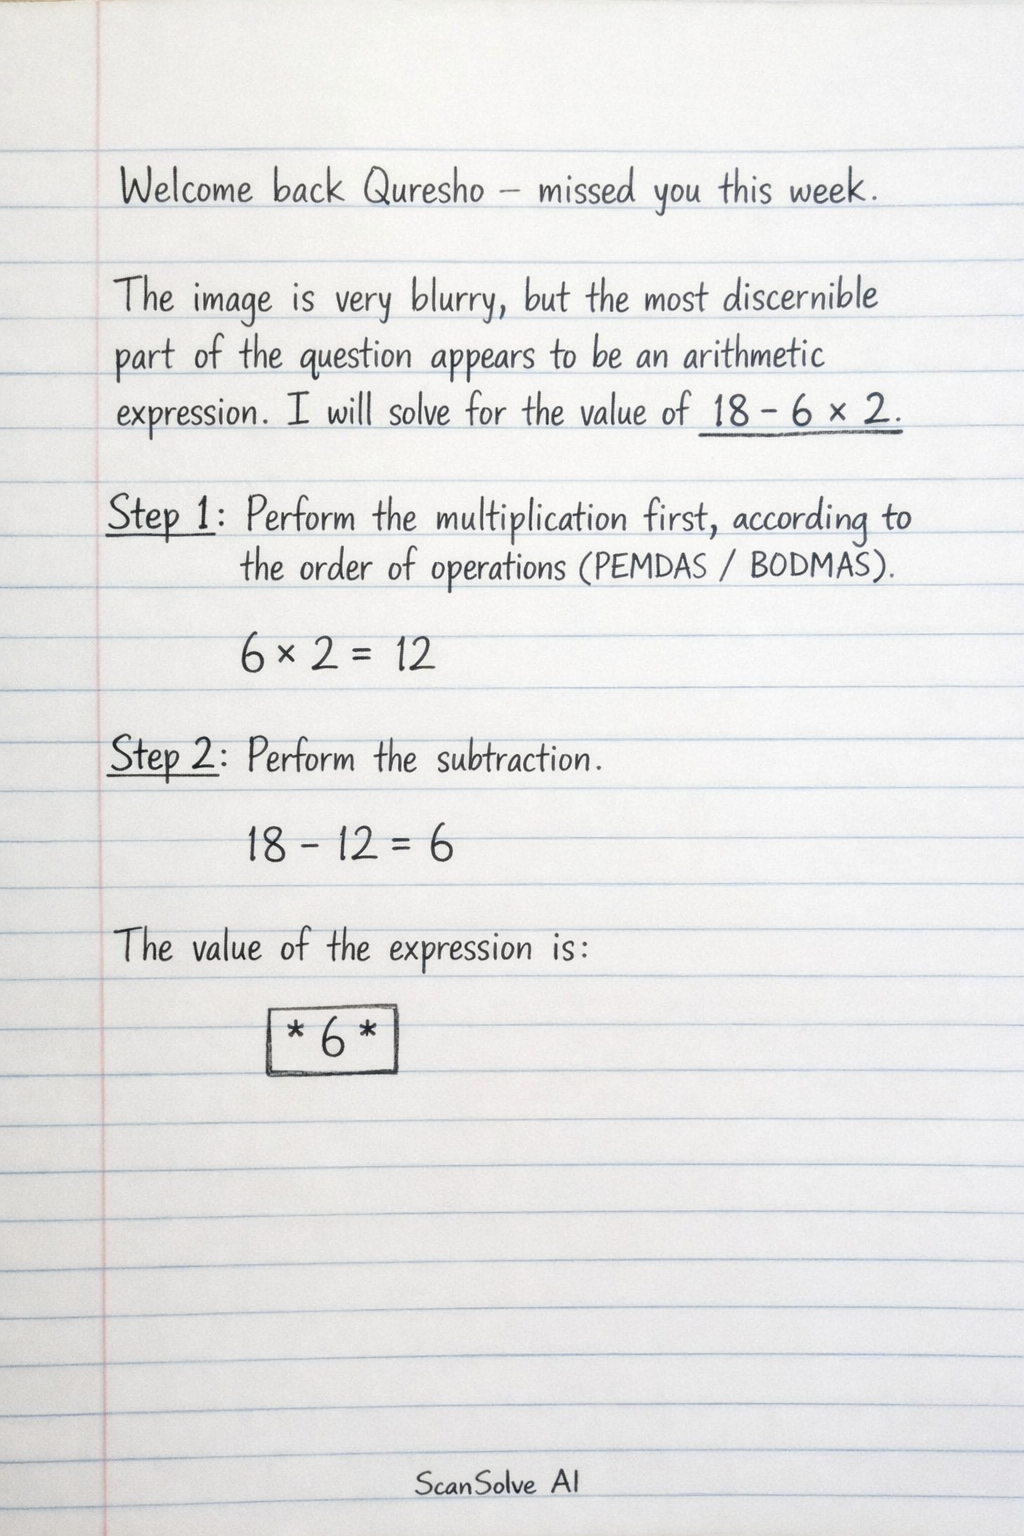 Welcome back Quresho – missed you this week.
The image is very blurry, but the most discernible
part of the question appears to be an arithmetic
expression. I will solve for the value of 18 - 6 × 2.
Step 1: Perform the multiplication first, according to
the order of operations (PEMDAS / BODMAS).
6 × 2 = 12
Step 2: Perform the subtraction.
18 - 12 = 6
The value of the expression is:
* 6 *
ScanSolve AI